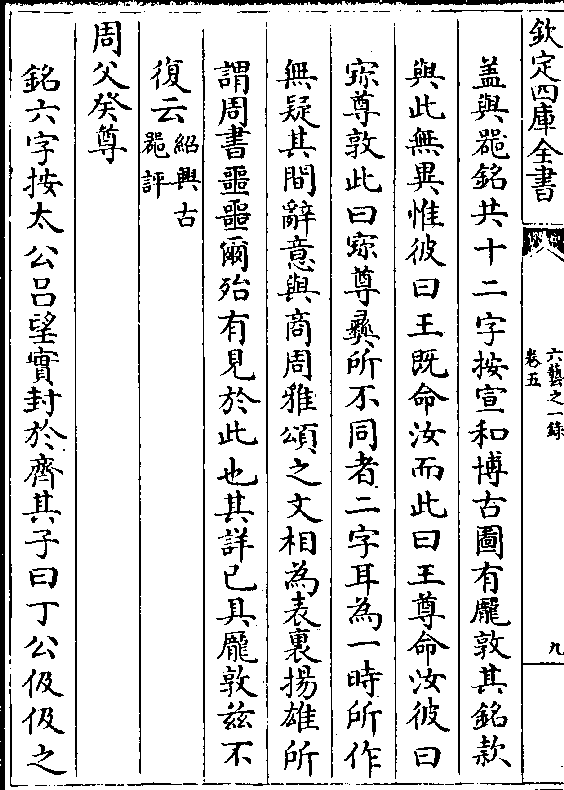 欽定四庫全書
六藝之一録
卷五
九
蓋與器銘共十二字按宣和博古圖有龎敦其銘款
與此無異惟彼曰王既命汝而此曰王尊命汝彼曰
寶尊敦此曰寶尊彞所不同者二字耳為一時所作
無疑其間辭意與商周雅頌之文相為表裏揚雄所
謂周書噩噩爾殆有見於此也其詳已具龎敦兹不
復云紹興古
器評
周父癸尊
銘六字按太公吕望實封於齊其子曰丁公伋伋之